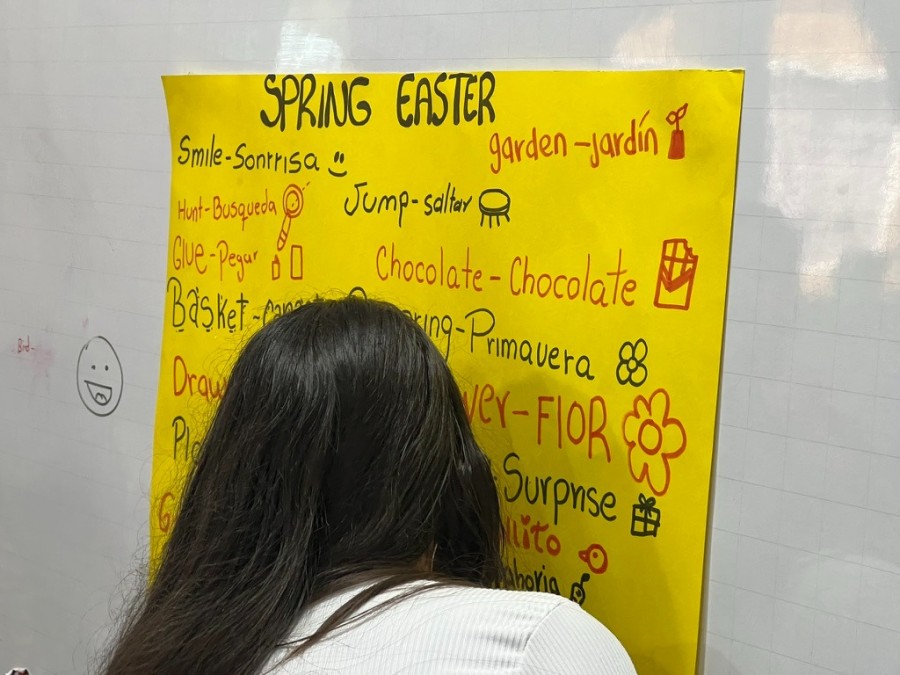 SPRING EASTER
Smile-Sonrrisa
garden-jardín
Hunt-Busqueda
Jump-saltar
Glue-Pegar
Chocolate-Chocolate
Basket-
ring-Primavera
Bird-
Draw
wer-FlOR
Pla
Surprise
G
llito
ahoria